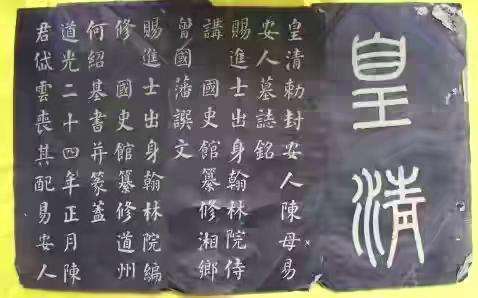 皇清
皇清勅封安人陳母易
安人墓誌銘
賜進士出身翰林院侍
講 國史館纂修湘鄉
曾國藩譔文
賜進士出身翰林院編
修 國史館纂修道州
何紹基書并篆蓋
道光二十四年正月陳
君岱雲喪其配易安人